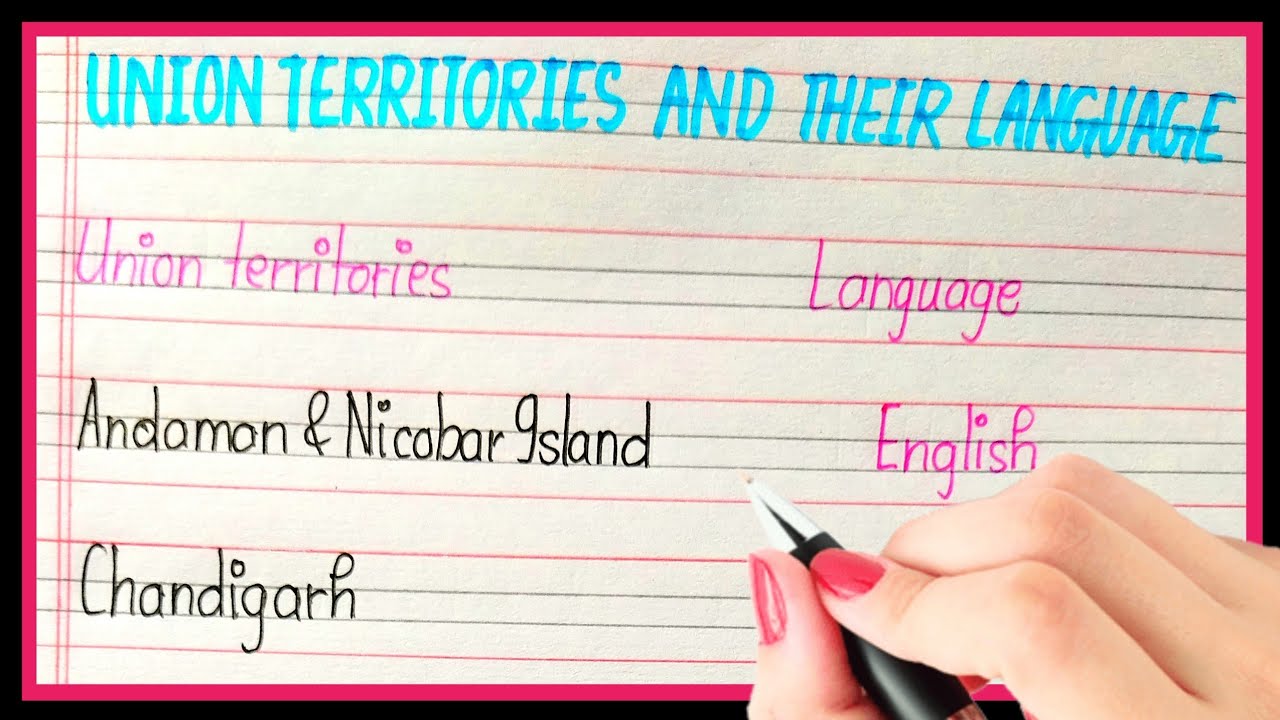 UNION TERRITORIES AND THEIR LANGUAGE
Union territories Language
Andaman & Nicobar Island English
Chandigarh